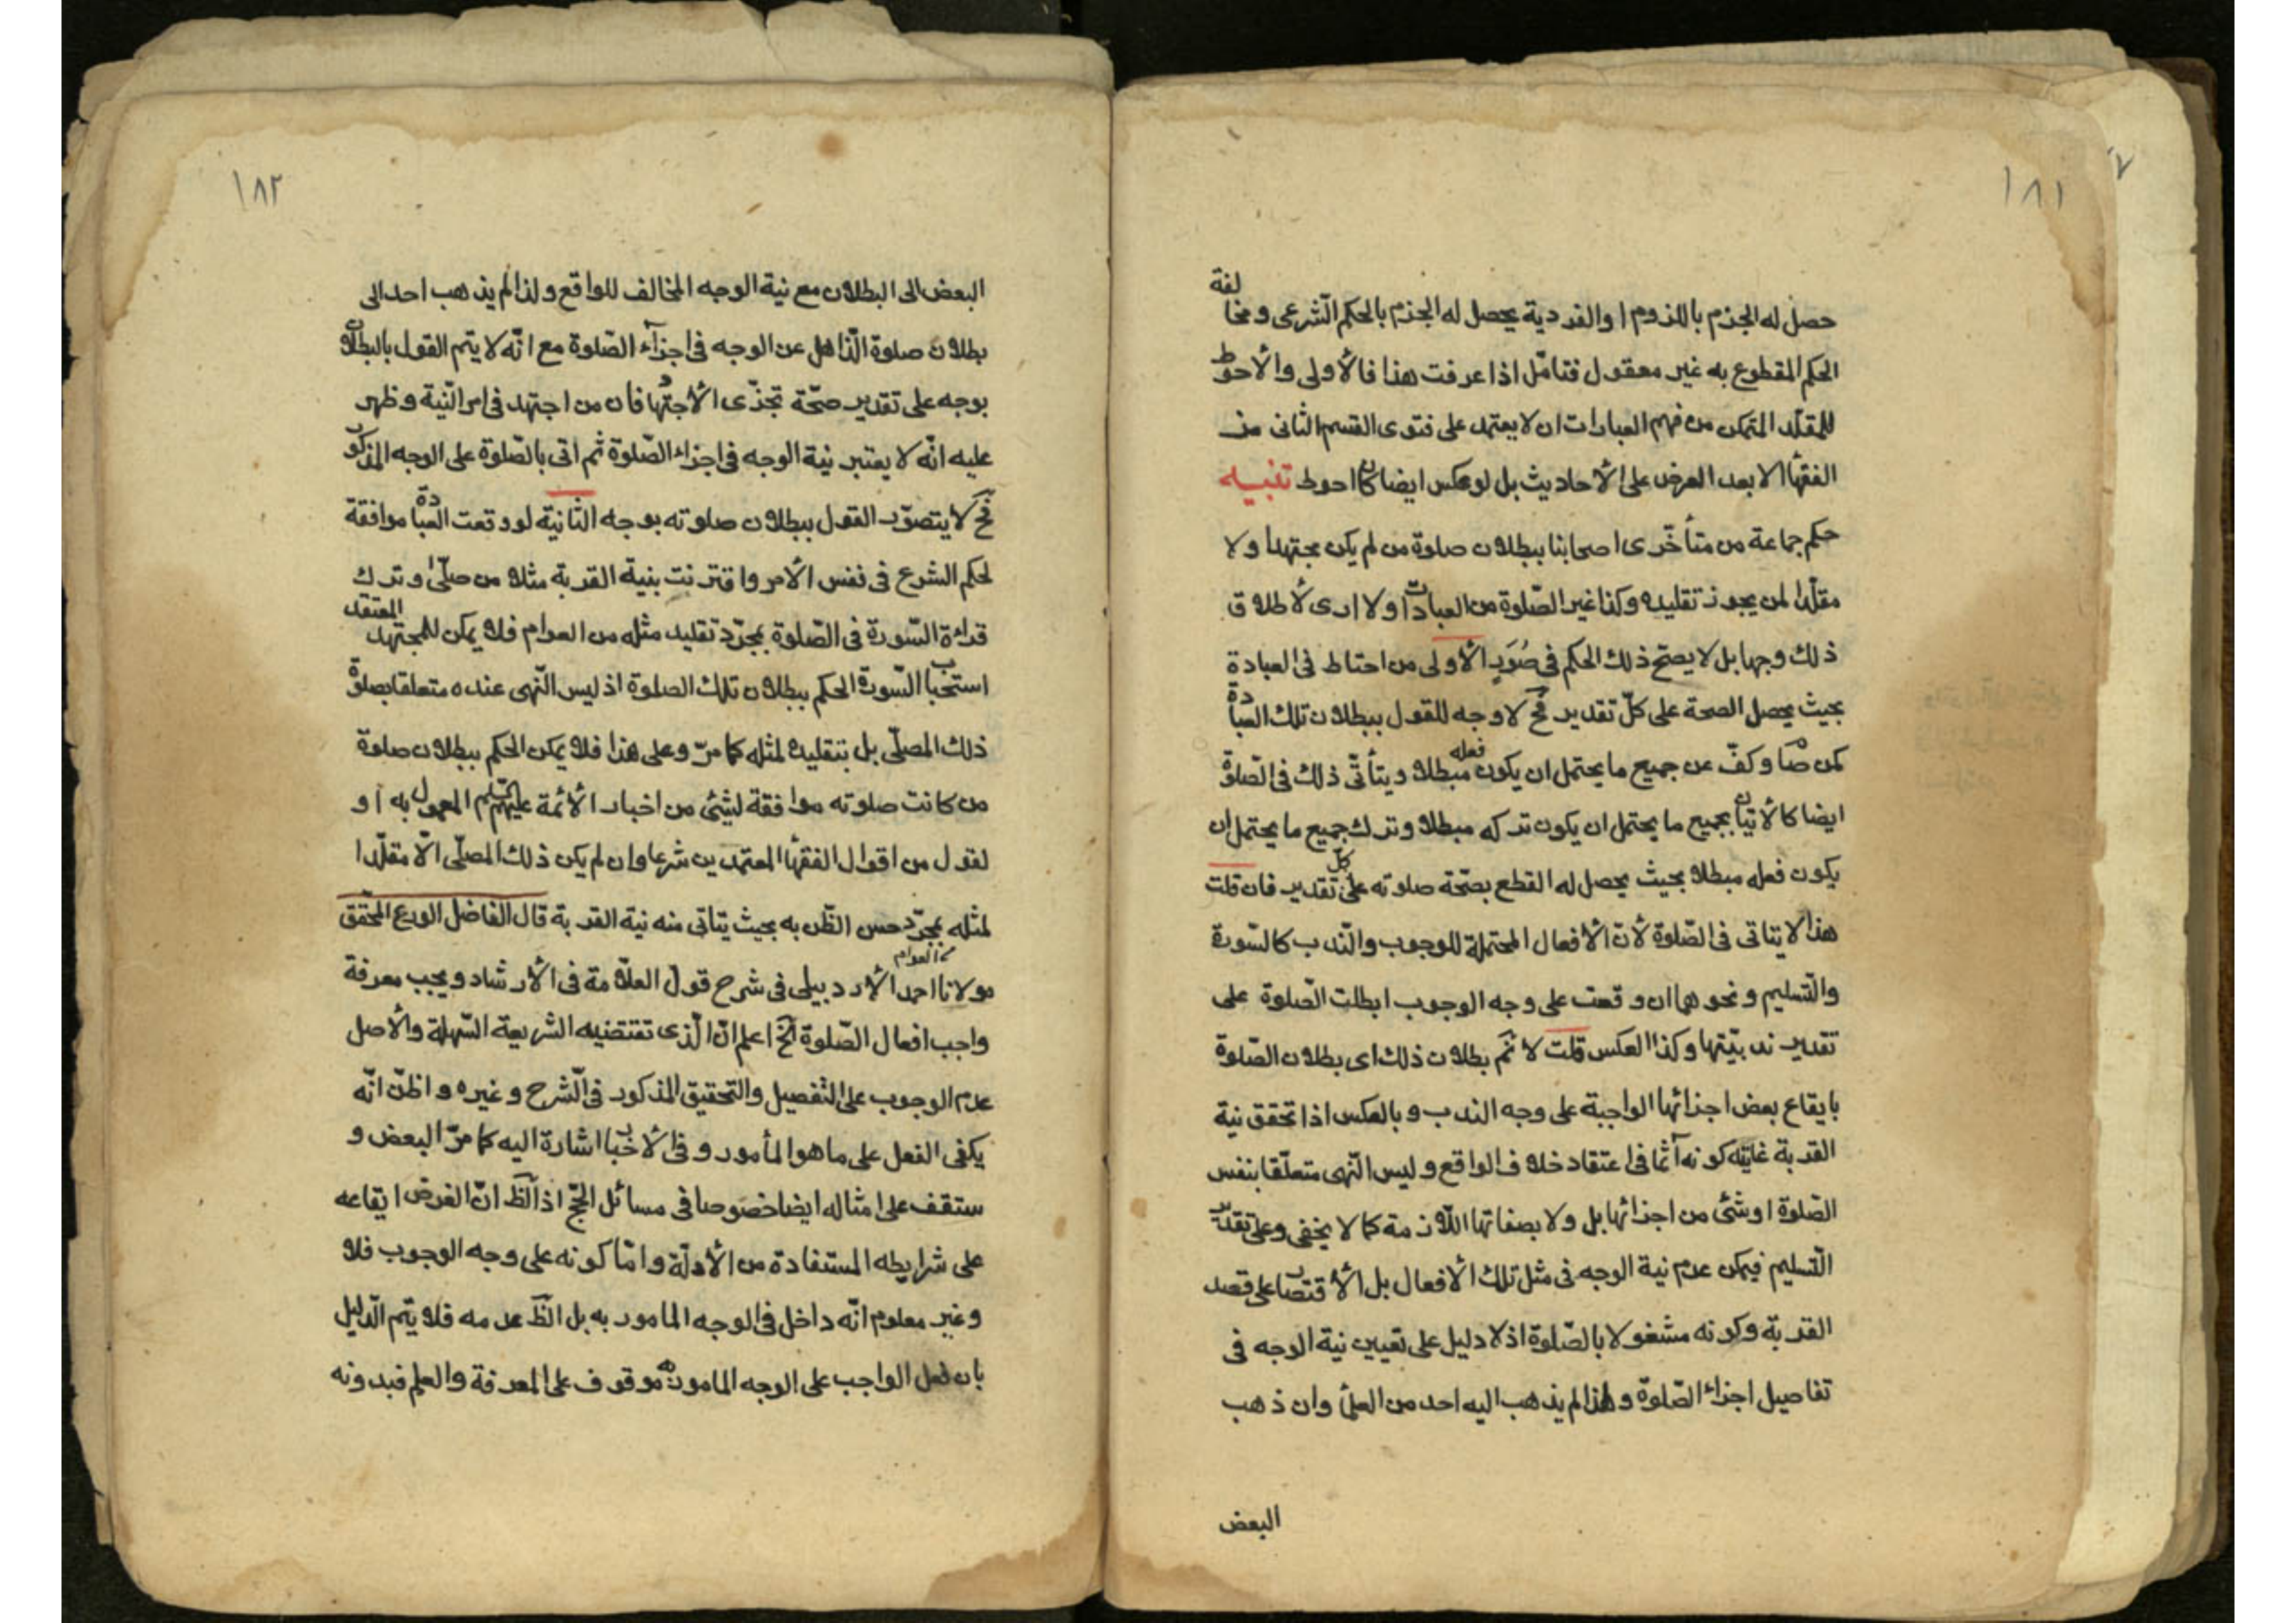 ١٨١
حصل له الجزم باللزوم او الفردية يحصل له الجزم بالحكم الشّرعى ومخالفة
الحكم المقطوع به غير معقول فتامّل اذا عرفت هذا فالأولى والأحوط
للمقلّد المتمكن من فهم العبارات ان لا يعتمد على فتوى القسم الثانى من
الفقهاء الا بعد العرض على الأحاديث بل لو عكس ايضا كان احوط تنبيه
حكم جماعة من متأخّرى اصحابنا ببطلان صلوة من لم يكن مجتهدا ولا
مقلّدا لمن يجوز تقليده وكذا غير الصّلوة من العبادات ولا ارى لأطلاق
ذلك وجها بل لا يصحّ ذلك الحكم فى صُوَرٍ الأولى من احتاط فى العبادة
بحيث يحصل الصحة على كلّ تقدير فح لا وجه للقول ببطلان تلك العبادة
كمن صام وكفّ عن جميع ما يحتمل ان يكون فعله مبطلا ويتأتّى ذلك فى الصّلوة
ايضا كالأتيان بجميع ما يحتمل ان يكون تركه مبطلا وترك جميع ما يحتمل ان
يكون فعله مبطلا بحيث يحصل له القطع بصحّة صلوته على كلّ تقدير فان قلت
هذا لا يتاتى فى الصّلوة لأنّ الأفعال المحتملة للوجوب والنّدب كالسّورة
والتّسليم ونحوهما ان وقعت على وجه الوجوب ابطلت الصّلوة على
تقدير ندبيّتها وكذا العكس قلت لا نم بطلان ذلك اى بطلان الصّلوة
بايقاع بعض اجزائها الواجبة على وجه الندب وبالعكس اذا تحقق نية
القربة غايته كونه آثما فى اعتقاد خلاف الواقع وليس النّهى متعلّقا بنفس
الصّلوة او شئ من اجزائها بل ولا بصفاتها اللّازمة كما لا يخفى وعلى تقدير
التّسليم فيمكن عدم نية الوجه فى مثل تلك الأفعال بل الأقتصار على قصد
القربة وكونه مشغولا بالصّلوة اذ لا دليل على تعيين نية الوجه فى
تفاصيل اجزاء الصّلوة ولهذا لم يذهب اليه احد من العلمأ وان ذهب
البعض
١٨٢
البعض الى البطلان مع نية الوجه المخالف للواقع ولذا لم يذهب احد الى
بطلان صلوة الذّاهل عن الوجه فى اجزآء الصّلوة مع انّه لا يتم القول بالبطلان
بوجه على تقدير صحّة تجزّى الأجتهاد فان من اجتهد فى امر النّية وظهر
عليه انّه لا يعتبر نية الوجه فى اجزاء الصّلوة ثم اتى بالصّلوة على الوجه المذكور
فح لا يتصوّر القول ببطلان صلوته بوجه الثّانية لو وقعت العبادة موافقة
لحكم الشرع فى نفس الأمر واقترنت بنية القربة مثلا من صلّى وترك
قراءة السّورة فى الصّلوة بمجرّد تقليد مثله من العوام فلا يمكن للمجتهد المعتقد
استحباب السّورة الحكم ببطلان تلك الصلوة اذ ليس النّهى عنده متعلقا بصلوة
ذلك المصلّى بل بتقليده لمثله كما مرّ وعلى هذا فلا يمكن الحكم ببطلان صلوة
من كانت صلوته موافقة لشئ من اخبار الأئمة عليهم السّلم المعمول به او
لقول من اقوال الفقهأ المعتمدين شرعا وان لم يكن ذلك المصلّى الّا مقلّدا
لمثله بمجرّد حسن الظّن به بحيث يتاتى منه نية القربة قال الفاضل الورع المحقق
العوام
مولانا احمد الأردبيلى فى شرح قول العلّامة فى الأرشاد ويجب معرفة
واجب افعال الصّلوة آلخ اعلم انّ الّذى تقتضيه الشريعة السّهلة والأصل
عدم الوجوب على التّفصيل والتّحقيق المذكور فى الشّرح وغيره واظنّ انّه
يكفى الفعل على ما هو المأمور وفى الأخبار اشارة اليه كما مرّ البعض و
ستقف على امثاله ايضا خصوصا فى مسائل الحجّ اذ الظ انّ الغرض ايقاعه
على شرايطه المستفادة من الأدلّة وامّا كونه على وجه الوجوب فلا
وغير معلوم انّه داخل فى الوجه المامور به بل الظ عدمه فلا يتم الّدليل
بان فعل الواجب على الوجه المامور به موقوف على المعرفة والعلم فبدونه